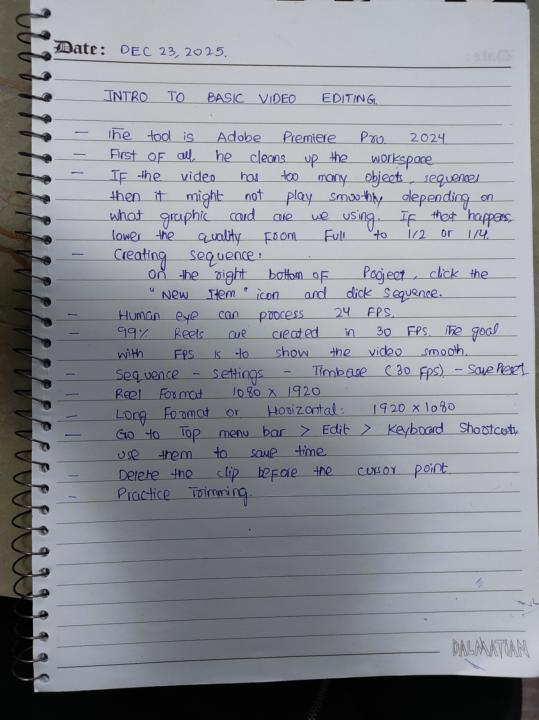 Date: DEC 23, 2025.
INTRO TO BASIC VIDEO EDITING
- The tool is Adobe Premiere Pro 2024
- First of all, he cleans up the workspace
- If the video has too many objects, sequences
then it might not play smoothly, depending on
what graphic card are we using. If that happens,
lower the quality from Full to 1/2 or 1/4.
- Creating sequence:
on the right bottom of Project, click the
"New Item" icon and click sequence.
- Human eye can process 24 FPS.
- 99% Reels are created in 30 FPS. The goal
with FPS is to show the video smooth.
- Sequence - settings - Timbase (30 fps) - Save Preset
- Reel Format 1080 x 1920
- Long Format or Horizontal: 1920 x 1080
- Go to Top menu bar > Edit > Keyboard Shortcuts
use them to save time
- Delete the clip before the cursor point
- Practice Trimming.
DALMATIAN